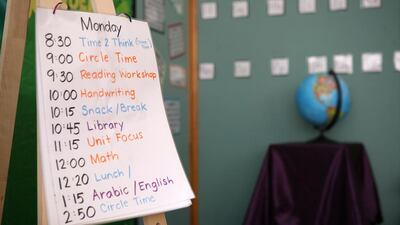 Monday
8:30 Time 2 Think
9:00 Circle Time
9:30 Reading Workshop
10:00 Handwriting
10:15 Snack/Break
10:45 Library
11:15 Unit Focus
12:00 Math
12:20 Lunch/
1:15 Arabic/English
2:50 Circle Time